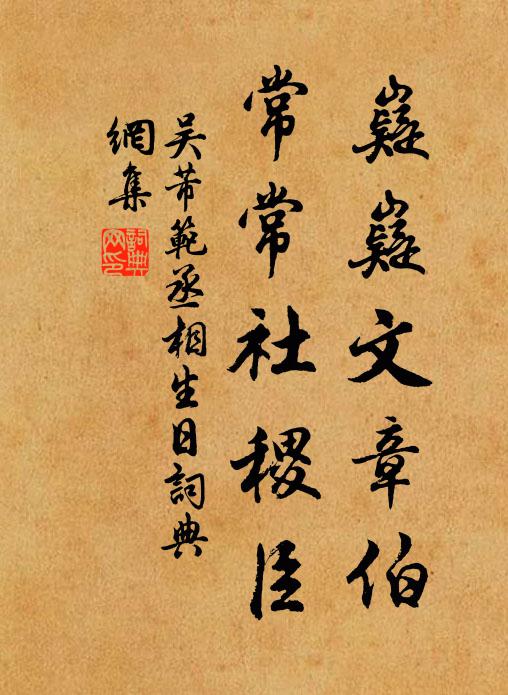 嶷嶷文章伯
常常社稷臣
吴芾範丞相生日詞典
網集
詞典網印